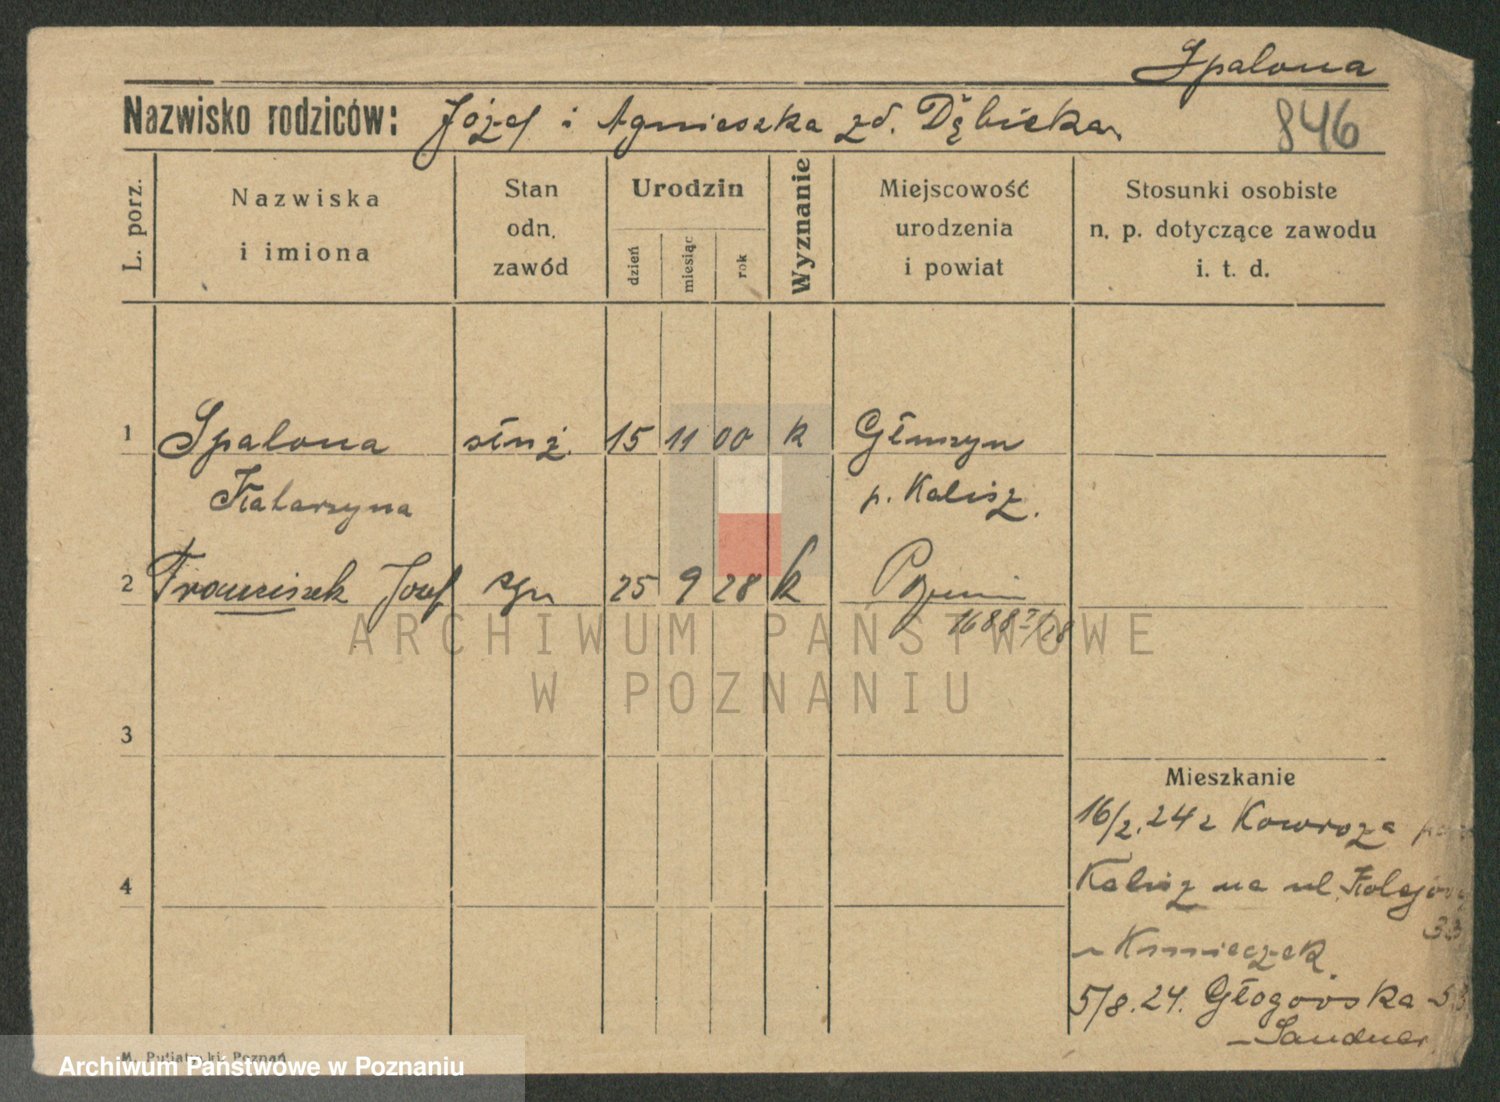 Spalona
Nazwisko rodziców: Józef i Agnieszka zd. Dębicka
846
L. porz.
Nazwiska
i imiona
Stan
odn.
zawód
Urodzin
dzień
miesiąc
rok
Wyznanie
Miejscowość
urodzenia
i powiat
Stosunki osobiste
n. p. dotyczące zawodu
i. t. d.
1 Spalona służ. 15 11 00 k
Katarzyna
p. Kalisz.
2 Franciszek Józef syn 25 9 28 k
ARCHIWUM PAŃSTWOWE
W POZNANIU
3
Mieszkanie
16/2. 24 z Kowroza
4
Kalisz na ul. Kolejową
33
5/8. 24. Głogowska
M. Putiatycki, Poznań
Archiwum Państwowe w Poznaniu